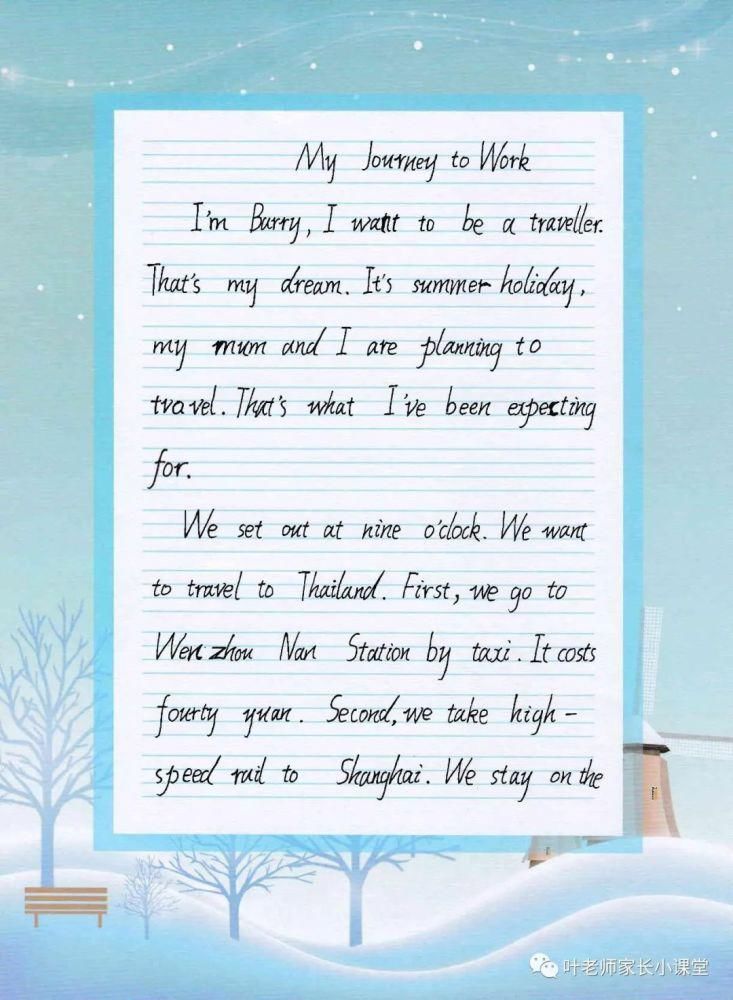 My Journey to Work
I'm Barry, I want to be a traveller.
That's my dream. It's summer holiday,
my mum and I are planning to
travel. That's what I've been expecting
for.
We set out at nine o'clock. We want
to travel to Thailand. First, we go to
Wenzhou Nan Station by taxi. It costs
fourty yuan. Second, we take high-
speed rail to Shanghai. We stay on the
叶老师家长小课堂